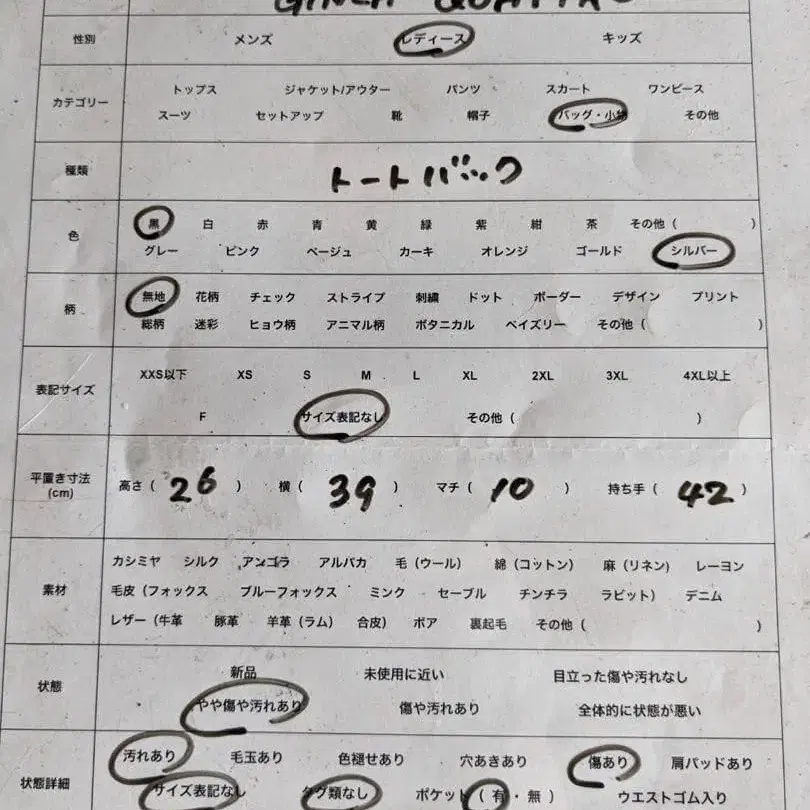 性別 メンズ レディース キッズ
カテゴリー
トップス ジャケット/アウター パンツ スカート ワンピース
スーツ セットアップ 靴 帽子 バッグ・小物 その他
種類 トートバック
色
黒 白 赤 青 黄 緑 紫 紺 茶 その他 ( )
グレー ピンク ベージュ カーキ オレンジ ゴールド シルバー
柄
無地 花柄 チェック ストライプ 刺繍 ドット ボーダー デザイン プリント
総柄 迷彩 ヒョウ柄 アニマル柄 ボタニカル ペイズリー その他 ( )
表記サイズ
XXS以下 XS S M L XL 2XL 3XL 4XL以上
F サイズ表記なし その他 ( )
平置き寸法
(cm)
高さ ( 26 ) 横 ( 39 ) マチ ( 10 ) 持ち手 ( 42 )
素材
カシミヤ シルク アンゴラ アルパカ 毛 (ウール) 綿 (コットン) 麻 (リネン) レーヨン
毛皮 (フォックス ブルーフォックス ミンク セーブル チンチラ ラビット) デニム
レザー (牛革 豚革 羊革 (ラム) 合皮) ボア 裏起毛 その他 ( )
状態
新品 未使用に近い 目立った傷や汚れなし
やや傷や汚れあり 傷や汚れあり 全体的に状態が悪い
状態詳細
汚れあり 毛玉あり 色褪せあり 穴あきあり 傷あり 肩パッドあり
サイズ表記なし タグ類なし ポケット ( 有・無 ) ウエストゴム入り